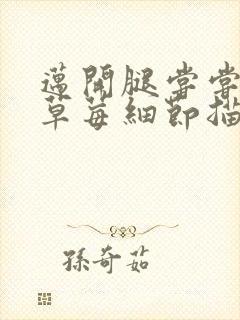 邁開腿嘗嘗
草莓細節描
孫奇茹